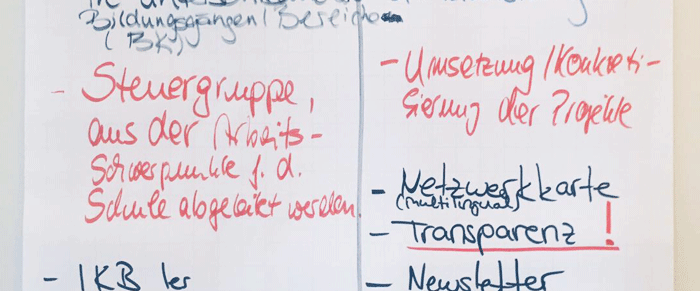 Bildungsgängen/Bereich
(BK)
- Steuergruppe,
aus der Arbeits-
Schwerpunkte f. d.
Schule abgeleitet werden.
- IKB ler
- Umsetzung/Konkreti-
sierung der Projekte
- Netzwerkkarte
(multilingual)
- Transparenz!
- Newsletter